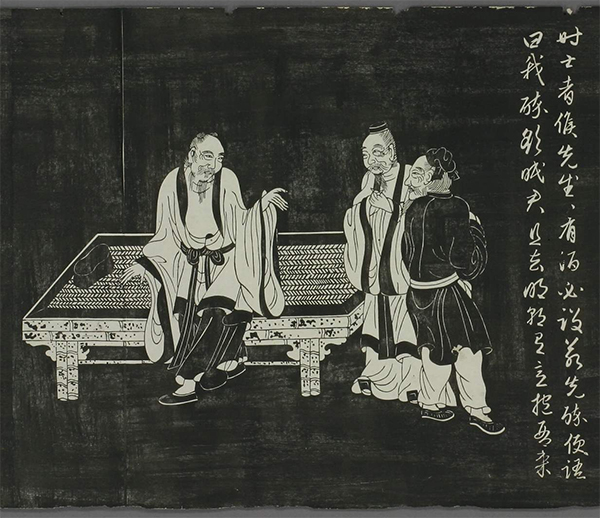 时士者候先生、有酒必设若先醉便语
曰我醉欲眠君且去明朝有意抱琴来